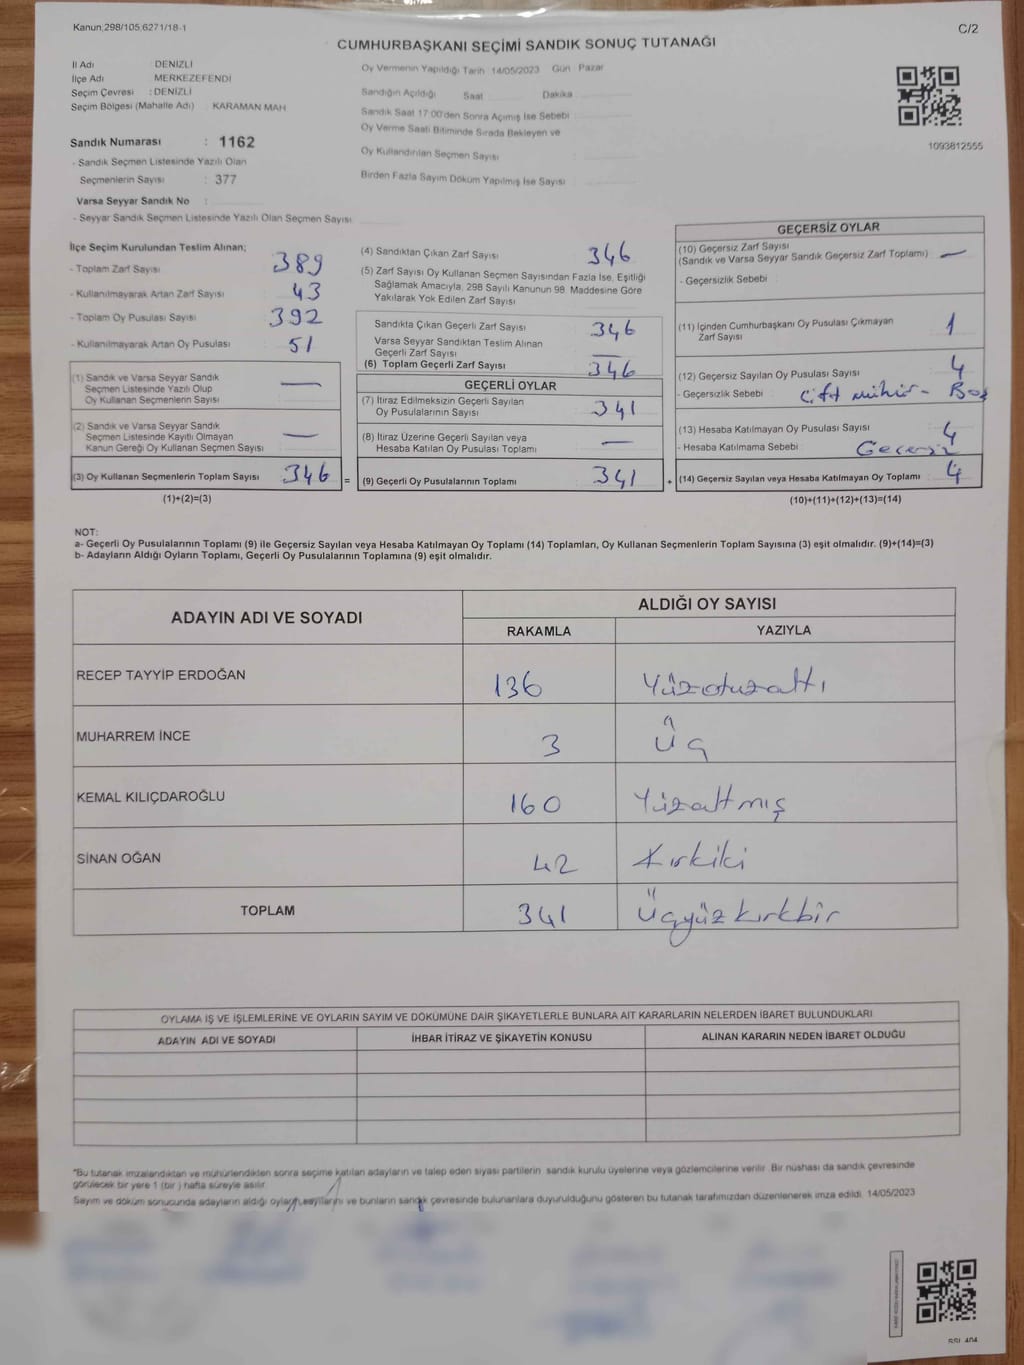 Kanun 298/105,6271/18-1
C/2
CUMHURBAŞKANI SEÇİMİ SANDIK SONUÇ TUTANAĞI
İl Adı : DENİZLİ
İlçe Adı : MERKEZEFENDİ
Seçim Çevresi : DENİZLİ
Seçim Bölgesi (Mahalle Adı) : KARAMAN MAH
Sandık Numarası : 1162
- Sandık Seçmen Listesinde Yazılı Olan
Seçmenlerin Sayısı : 377
Varsa Seyyar Sandık No :
- Seyyar Sandık Seçmen Listesinde Yazılı Olan Seçmen Sayısı
Oy Vermenin Yapıldığı Tarih : 14/05/2023 Gün : Pazar
Sandığın Açıldığı Saat Dakika
Sandık Saat 17:00'den Sonra Açılmış İse Sebebi :
Oy Verme Saati Bitiminde Sırada Bekleyen ve
Oy Kullandırılan Seçmen Sayısı :
Birden Fazla Sayım Döküm Yapılmış İse Sayısı :
1093812555
İlçe Seçim Kurulundan Teslim Alınan;
- Toplam Zarf Sayısı 389
- Kullanılmayarak Artan Zarf Sayısı 43
- Toplam Oy Pusulası Sayısı 392
- Kullanılmayarak Artan Oy Pusulası 51
(1) Sandık ve Varsa Seyyar Sandık
Seçmen Listesinde Yazılı Olup
Oy Kullanan Seçmenlerin Sayısı : —
(2) Sandık ve Varsa Seyyar Sandık
Seçmen Listesinde Kayıtlı Olmayan
Kanun Gereği Oy Kullanan Seçmen Sayısı : —
(3) Oy Kullanan Seçmenlerin Toplam Sayısı : 346 =
(1)+(2)=(3)
(4) Sandıktan Çıkan Zarf Sayısı : 346
(5) Zarf Sayısı Oy Kullanan Seçmen Sayısından Fazla İse, Eşitliği
Sağlamak Amacıyla, 298 Sayılı Kanunun 98. Maddesine Göre
Yakılarak Yok Edilen Zarf Sayısı :
Sandıkta Çıkan Geçerli Zarf Sayısı : 346
Varsa Seyyar Sandıktan Teslim Alınan
Geçerli Zarf Sayısı : —
(6) Toplam Geçerli Zarf Sayısı : 346
GEÇERLİ OYLAR
(7) İtiraz Edilmeksizin Geçerli Sayılan
Oy Pusulalarının Sayısı : 341
(8) İtiraz Üzerine Geçerli Sayılan veya
Hesaba Katılan Oy Pusulası Toplamı : —
(9) Geçerli Oy Pusulalarının Toplamı : 341 +
GEÇERSİZ OYLAR
(10) Geçersiz Zarf Sayısı
(Sandık ve Varsa Seyyar Sandık Geçersiz Zarf Toplamı) : —
- Geçersizlik Sebebi :
(11) İçinden Cumhurbaşkanı Oy Pusulası Çıkmayan
Zarf Sayısı : 1
(12) Geçersiz Sayılan Oy Pusulası Sayısı : 4
- Geçersizlik Sebebi : Çift mühür - Boş
(13) Hesaba Katılmayan Oy Pusulası Sayısı : 4
- Hesaba Katılmama Sebebi : Geçersiz
(14) Geçersiz Sayılan veya Hesaba Katılmayan Oy Toplamı : 4
(10)+(11)+(12)+(13)=(14)
NOT:
a- Geçerli Oy Pusulalarının Toplamı (9) ile Geçersiz Sayılan veya Hesaba Katılmayan Oy Toplamı (14) Toplamları, Oy Kullanan Seçmenlerin Toplam Sayısına (3) eşit olmalıdır. (9)+(14)=(3)
b- Adayların Aldığı Oyların Toplamı, Geçerli Oy Pusulalarının Toplamına (9) eşit olmalıdır.
ADAYIN ADI VE SOYADI
ALDIĞI OY SAYISI
RAKAMLA YAZIYLA
RECEP TAYYİP ERDOĞAN 136 Yüzotuzaltı
MUHARREM İNCE 3 Üç
KEMAL KILIÇDAROĞLU 160 Yüzaltmış
SİNAN OĞAN 42 Kırkiki
TOPLAM 341 Üçyüzkırkbir
OYLAMA İŞ VE İŞLEMLERİNE VE OYLARIN SAYIM VE DÖKÜMÜNE DAİR ŞİKAYETLERLE BUNLARA AİT KARARLARIN NELERDEN İBARET BULUNDUKLARI
ADAYIN ADI VE SOYADI İHBAR İTİRAZ VE ŞİKAYETİN KONUSU ALINAN KARARIN NEDEN İBARET OLDUĞU
*Bu tutanak imzalandıktan ve mühürlendikten sonra seçime katılan adayların ve talep eden siyasi partilerin sandık kurulu üyelerine veya gözlemcilerine verilir. Bir nüshası da sandık çevresinde
görülecek bir yere 1 (bir ) hafta süreyle asılır.
Sayım ve döküm sonucunda adayların aldığı oyların sayılarını ve bunların sandık çevresinde bulunanlara duyurulduğunu gösteren bu tutanak tarafımızdan düzenlenerek imza edildi. 14/05/2023